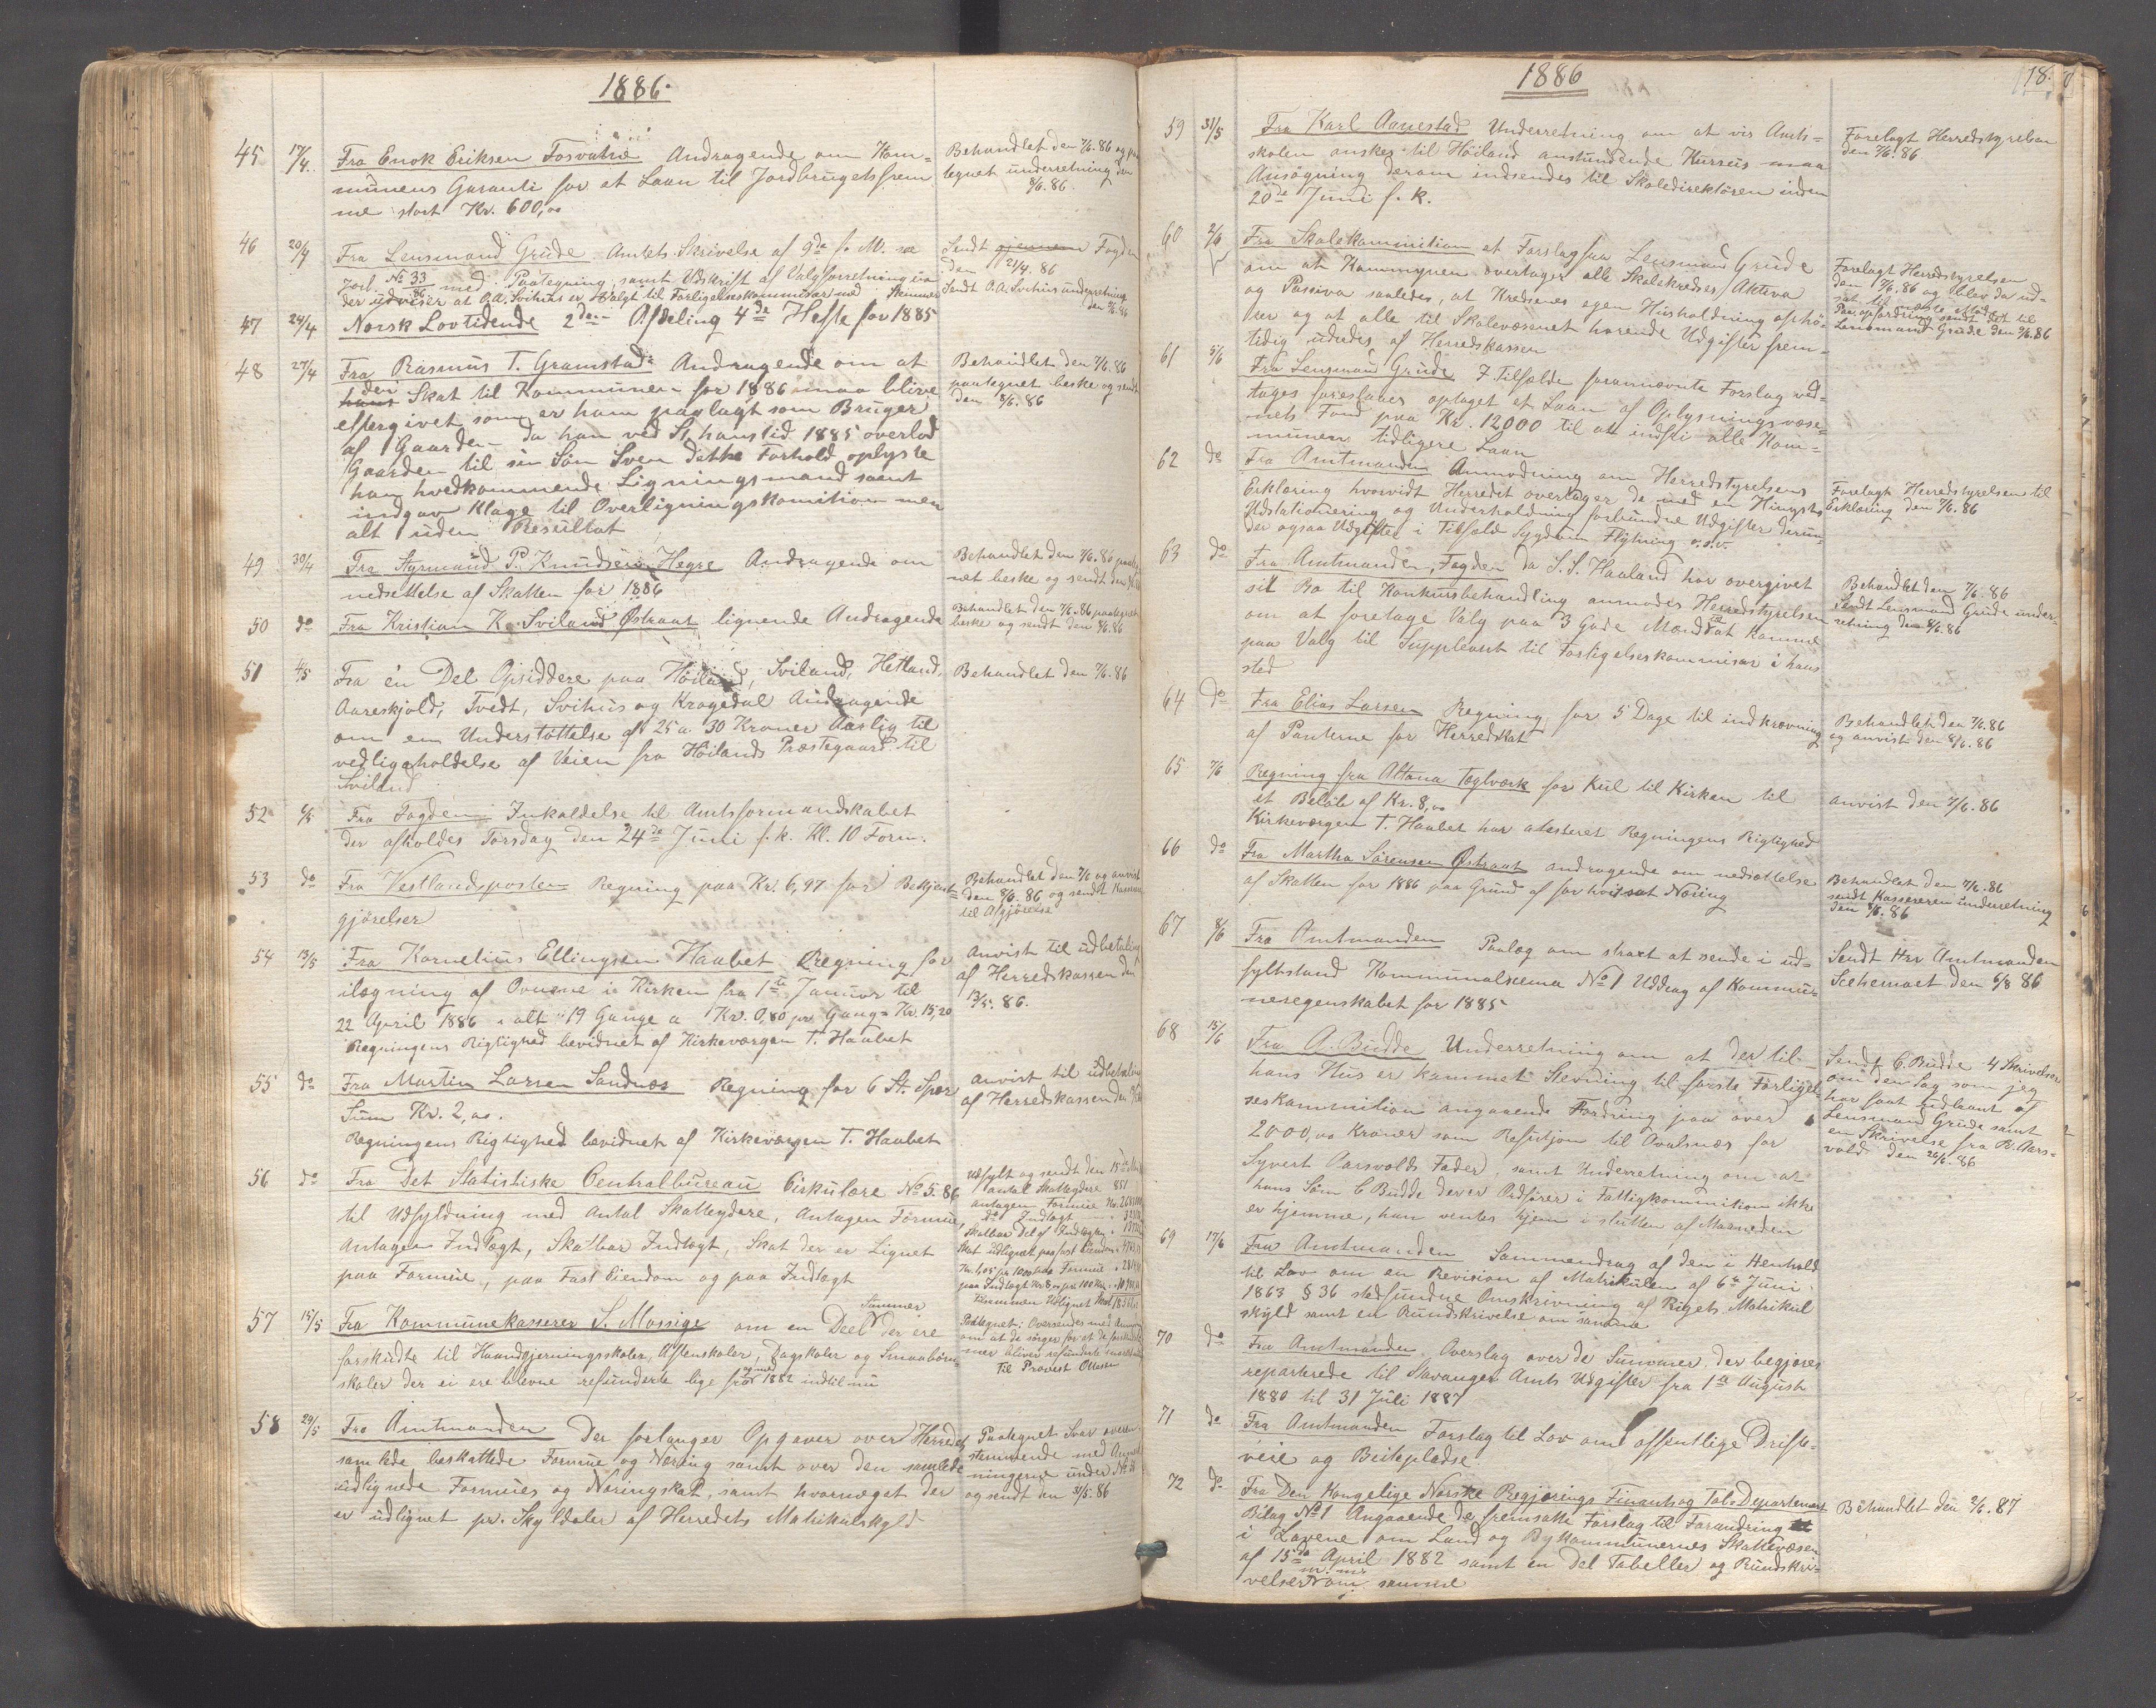 1886.
45 17/4. Fra Enok Eriksen Fosvatne Andragende om Kom=
munens Garanti for et Laan til Jordbrugets frem
me stort Kr. 600,00
Behandlet den 7/6. 86 og paa
tegnet underretning den
8/6. 86.
46 20/4 Fra Lensmand Grude Amtets Skrivelse af 9de f. M.
Jorl. No 33/86 med Paategning, samt Udskrift af Valgforretning
der udviser at O.A. Svihus er Valgt til Forligelseskommisær med
Sendt gjennem Fogden
den 21/4. 86
Sendt O.A. Svihus underretning
den
47 24/4 Norsk Lovtidende 2den Afdeling 4de Hefte for 1885
48 27/4 Fra Rasmus T. Gramstad: Andragende om at
hans den Skat til Kommunen for 1886 maa blive
eftergivet som er ham paalagt som Bruger
af Gaarden - da han ved St. hanstid 1885 overlod
Gaarden til sin Søn Sven dette Forhold oplyste
han hvedkommende Ligningsmand samt
indgav Klage til Overligningskomition men
alt uden Resultat
Behandlet den 7/6. 86
paategnet beske og sendt
den 8/6. 86
49 30/4 Fra Styrmand P. Knudsen Hegre Andragende om
nedsettelse af Skatten for 1886
Behandlet den 7/6. 86 paateg
net beske og sendt den 8/6.
50 do Fra Kristian K. Sviland Østraat lignende Andragende
Behandlet den 7/6. 86 paategnet
beske og sendt den 8/6. 86
51 4/5 Fra en Del Opsiddere paa Høiland, Sviland, Hetland,
Aareskjold, Tvedt, Svihus og Kragedal Andragende
om en Understøttelse af 25 a 30 Kroner Aarlig til
vedligeholdelse af Veien fra Høilands Præstegaard til
Sviland
Behandlet den 7/6. 86
52 6/5 Fra Fogden Inkaldelse til Amtsformandskabet
der afholdes Torsdag den 24de Juni f. k. Kl. 10 Form.
53 do Fra Vestlandsposten Regning paa Kr. 6,97 for Bekjendt=
gjørelser
Behandlet den 7/6 og anvist
den 8/6. 86 og sendt
til Afgjørelse
54 13/5 Fra Kornelius Ellingsen Haabet Regning for
ilægning af Ovnene i Kirken fra 1ste Januar til
22 April 1886 i alt 19 Gange a Kr. 0,80 pr Gang = Kr. 15,20
Regningens Rigtighed bevidnet af Kirkeværgen T. Haabet
Anvist til udbetaling
af Herredskassen den
13/5. 86.
55 do Fra Martin Larsen Sandnæs Regning for 6 St. Spær
Sum Kr. 2,00.
Regningens Rigtighed bevidnet af Kirkeværgen T. Haabet
anvist til udbetaling
af Herredskassen den
56 do Fra Det Statistiske Centralbureau Cirkulære No 5. 86
til Udfyldning med Antal Skatteydere, Antagen Formue,
Antagen Indtægt, Skatbar Indtægt, Skat der er Lignet
paa Formue, paa Fast Eiendom og paa Indtægt
Udfylt og sendt den 15de
antal Skatteydere 851
antagen Formue Kr.
do Indtægt
Skatbar Del af Indtægten
Skat udlignet paa fast Eiendom
Kr. 1,05 pr 1000 Kr. Formue
paa Indtægt Kr 8, pr 100 Kr.
Tilsammen Udlignet Skat
57 15/5 Fra Kommunekasserer S. Mossige om en Deel Summer der ere
forskudte til Haandgjerningsskoler, Aftenskoler, Dagskoler og Smaabørn
skoler der ei ere blevne refunderte lige fra og med 1882 indtil nu
Paategnet; Oversendes med Anmodn
om at de sørger for at de forskudte
mer bliver refunderte snarest
Til Provest Olsen
58 29/5 Fra Amtmanden Der forlanger Opgaver over Herredets
samlede beskattede Formue og Næring samt over den samlede
udlignede Formues og Næringskat, samt hvormeget der
er udlignet pr. Skyldaler af Herredets Matrikulskyld
Paategnet Svar overen
stemmende med Angiv
ningerne under No
og sendt den 31/5. 86
1886
18
59 31/5 Fra Karl Aanestad Underretning om at vis Amts=
skolen ønskes til Høiland anstundende Kursus maa
Ansøgning derom indsendes til Skoledirektøren inden
20de Juni f. k.
Forelagt Herredstyrelsen
den 7/6. 86
60 2/6 Fra Skolekommition et Forslag fra Lensmand Grude
om at Kommunen overtager alle Skolekredser Aktiva
og Passiva saaledes, at Kredsenes egen Husholdning ophø=
rer og at alle til Skolevæsenet hørende Udgifter frem=
tidig udredes af Herredskassen
Forelagt Herredstyrelsen
den 7/6. 86 og blev da ud=
sat til næste Møde
Paa opfordring sendt det til
Lensmand Grude den 9/6. 86
61 5/6 Fra Lensmand Grude I Tilfælde foranævnte Forslag ved=
tages foreslaaes optaget et Laan af Oplysningsvæse=
nets Fond paa Kr. 12000 til at indfri alle Kom=
munens tidligere Laan
62 do Fra Amtmanden Anmodning om Herredstyrelsens
Erklæring hvorvidt Herredet overtager de med en Hingsts
Udstationering og Underholdning forbundne Udgifter derun=
der ogsaa Udgifter i Tilfælde Sygdom Flytning o.s.v.
Forelagt Herredstyrelsen til
Erklæring den 7/6. 86
63 do Fra Amtmanden, Fogden da S. S. Haaland har overgivet
sit Bo til Konkursbehandling anmodes Herredstyrelsen
om at foretage Valg paa 3 Gode Mænd samt komme
paa Valg til Suppleant til Forligelseskommisær i hans
sted
Behandlet den 7/6. 86
Sendt Lensmand Grude under=
retning den 8/6. 86
64 do Fra Elias Larsen Regning for 5 Dage til indkrævning
af Panterne for Herredskat
Behandlet den 7/6. 86
og anvist den 8/6. 86
65 7/6 Regning fra Altona Teglværk for Kul til Kirken til
et Beløb af Kr. 8,00
Kirkeværgen T. Haabet har atesteret Regningens Rigtighed
anvist den 7/6. 86
66 do Fra Martha Sørensen Østraat andragende om nedsættelse
af Skatten for 1886 paa Grund af for høit sat Næring
Behandlet den 7/6. 86
sendt Kassereren underretning
den 8/6. 86
67 8/6 Fra Amtmanden Paalæg om strax at sende i ud=
fylt stand Kommunalskema No 1 Uddrag af Kommu=
neregenskabet for 1885
Sendt Hr. Amtmanden
Scehemaet den 6/8 86
68 15/6 Fra A. Budde Underretning om at der til
hans Hus er kommet Stevning til første Forligel=
seskommition angaaende Fordring paa over
2000,00 Kroner som til Ovalsnæs for
Syvert Aarsvolds Fader, samt Underretning om at
hans Søn C Budde der er Ordfører i Fattigkommition ikke
er hjemme, han ventes hjem i slutten af Maaneden
Sendt C. Budde 4 Skrivelser
om den Sag som jeg
har faat udlaant af
Lensmand Grude samt
en Skrivelse fra B. Aars=
vold den 26/6. 86
69 17/6 Fra Amtmanden Sammendrag af den i Henhold
til Lov om en Revision af Matrikulen af 6te Juni
1863 § 36 stedfundne Omskrivning af Rigets Matrikul
skyld samt en Rundskrivelse om samme
70 do Fra Amtmanden Overslag over de Summer der begjæres
reparterede til Stavanger Amts Udgifter fra 1ste August
1880 til 31 Juli 1887
71 do Fra Amtmanden Forslag til Lov om offentlige Drifte=
veie og Beiteplædse
72 do Fra Den Kongelige Norske Regjerings Finants og Told Departement
Bilag No 1 Angaaende de fremsatte Forslag til Forandring
i Lovene om Land og Bykommunernes Skattevæsen
af 15de April 1882 samt en del Tabeller og Rundskri=
velser m. m. om samme
Behandlet den 2/6. 87